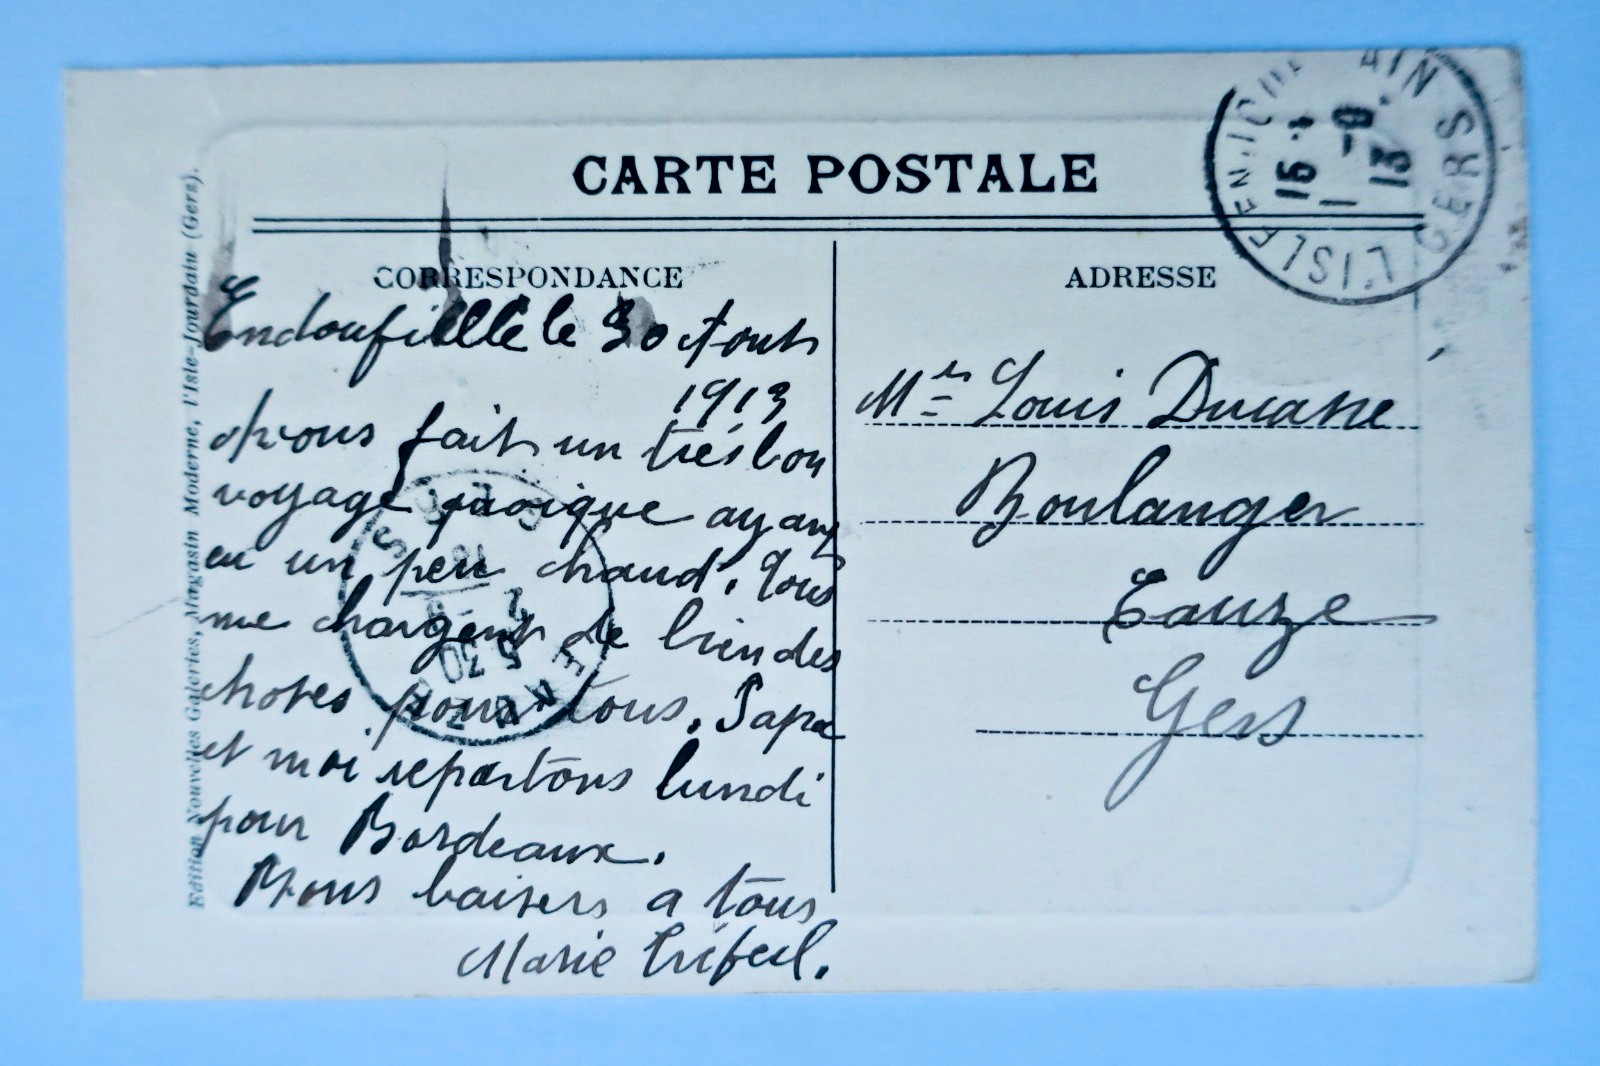 CARTE POSTALE
CORRESPONDANCE
Endoufielle le 30 Aout
1913
Avons fait un très bon
voyage quoique ayant
eu un peu chaud. Tous
me chargent de bien des
choses pour tous. Papa
et moi repartons lundi
pour Bordeaux.
Bons baisers a tous
Marie
ADRESSE
Louis Ducasse
Boulanger
Eauze
Gers
Edition Nouvelles Galeries, Magasin Moderne, l'Isle-Jourdain (Gers).
L'ISLE-EN- GERS
1 -9
13
EAUZE GERS
5 30